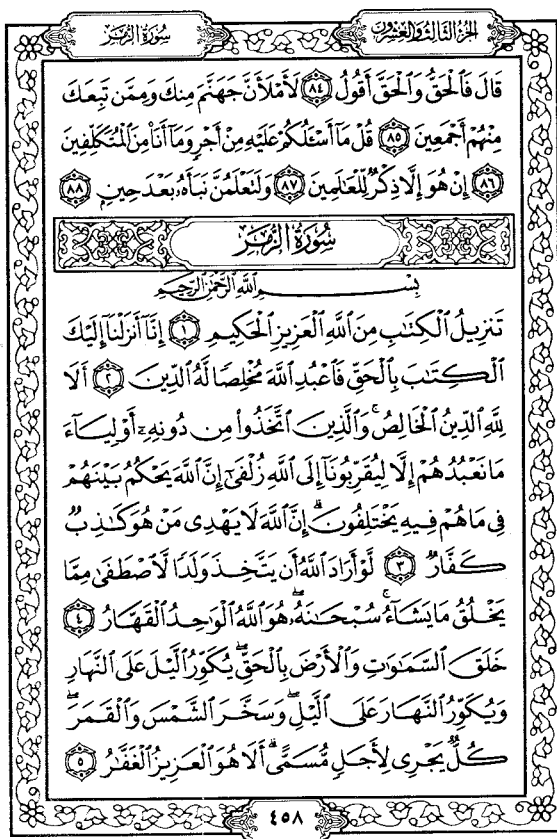 الجزء الثالث والعشرون
سُورَةُ الزُّمَرِ
قَالَ فَالْحَقُّ وَالْحَقَّ أَقُولُ ٨٤ لَأَمْلَأَنَّ جَهَنَّمَ مِنكَ وَمِمَّن تَبِعَكَ
مِنْهُمْ أَجْمَعِينَ ٨٥ قُلْ مَا أَسْـَٔلُكُمْ عَلَيْهِ مِنْ أَجْرٍ وَمَا أَنَا۠ مِنَ الْمُتَكَلِّفِينَ
٨٦ إِنْ هُوَ إِلَّا ذِكْرٌ لِّلْعَٰلَمِينَ ٨٧ وَلَتَعْلَمُنَّ نَبَأَهُۥ بَعْدَ حِينٍ ٨٨
سُورَةُ الزُّمَرِ
بِسْمِ اللَّهِ الرَّحْمَٰنِ الرَّحِيمِ
تَنزِيلُ الْكِتَٰبِ مِنَ اللَّهِ الْعَزِيزِ الْحَكِيمِ ١ إِنَّا أَنزَلْنَا إِلَيْكَ
الْكِتَٰبَ بِالْحَقِّ فَاعْبُدِ اللَّهَ مُخْلِصًا لَّهُ الدِّينَ ٢ أَلَا
لِلَّهِ الدِّينُ الْخَالِصُ ۚ وَالَّذِينَ اتَّخَذُوا مِن دُونِهِۦٓ أَوْلِيَآءَ
مَا نَعْبُدُهُمْ إِلَّا لِيُقَرِّبُونَآ إِلَى اللَّهِ زُلْفَىٰٓ إِنَّ اللَّهَ يَحْكُمُ بَيْنَهُمْ
فِى مَا هُمْ فِيهِ يَخْتَلِفُونَ ۗ إِنَّ اللَّهَ لَا يَهْدِى مَنْ هُوَ كَٰذِبٌ
كَفَّارٌ ٣ لَّوْ أَرَادَ اللَّهُ أَن يَتَّخِذَ وَلَدًا لَّاصْطَفَىٰ مِمَّا
يَخْلُقُ مَا يَشَآءُ ۚ سُبْحَٰنَهُۥ ۖ هُوَ اللَّهُ الْوَٰحِدُ الْقَهَّارُ ٤
خَلَقَ السَّمَٰوَٰتِ وَالْأَرْضَ بِالْحَقِّ ۖ يُكَوِّرُ الَّيْلَ عَلَى النَّهَارِ
وَيُكَوِّرُ النَّهَارَ عَلَى الَّيْلِ ۖ وَسَخَّرَ الشَّمْسَ وَالْقَمَرَ ۖ
كُلٌّ يَجْرِى لِأَجَلٍ مُّسَمًّى ۗ أَلَا هُوَ الْعَزِيزُ الْغَفَّٰرُ ٥
٤٥٨